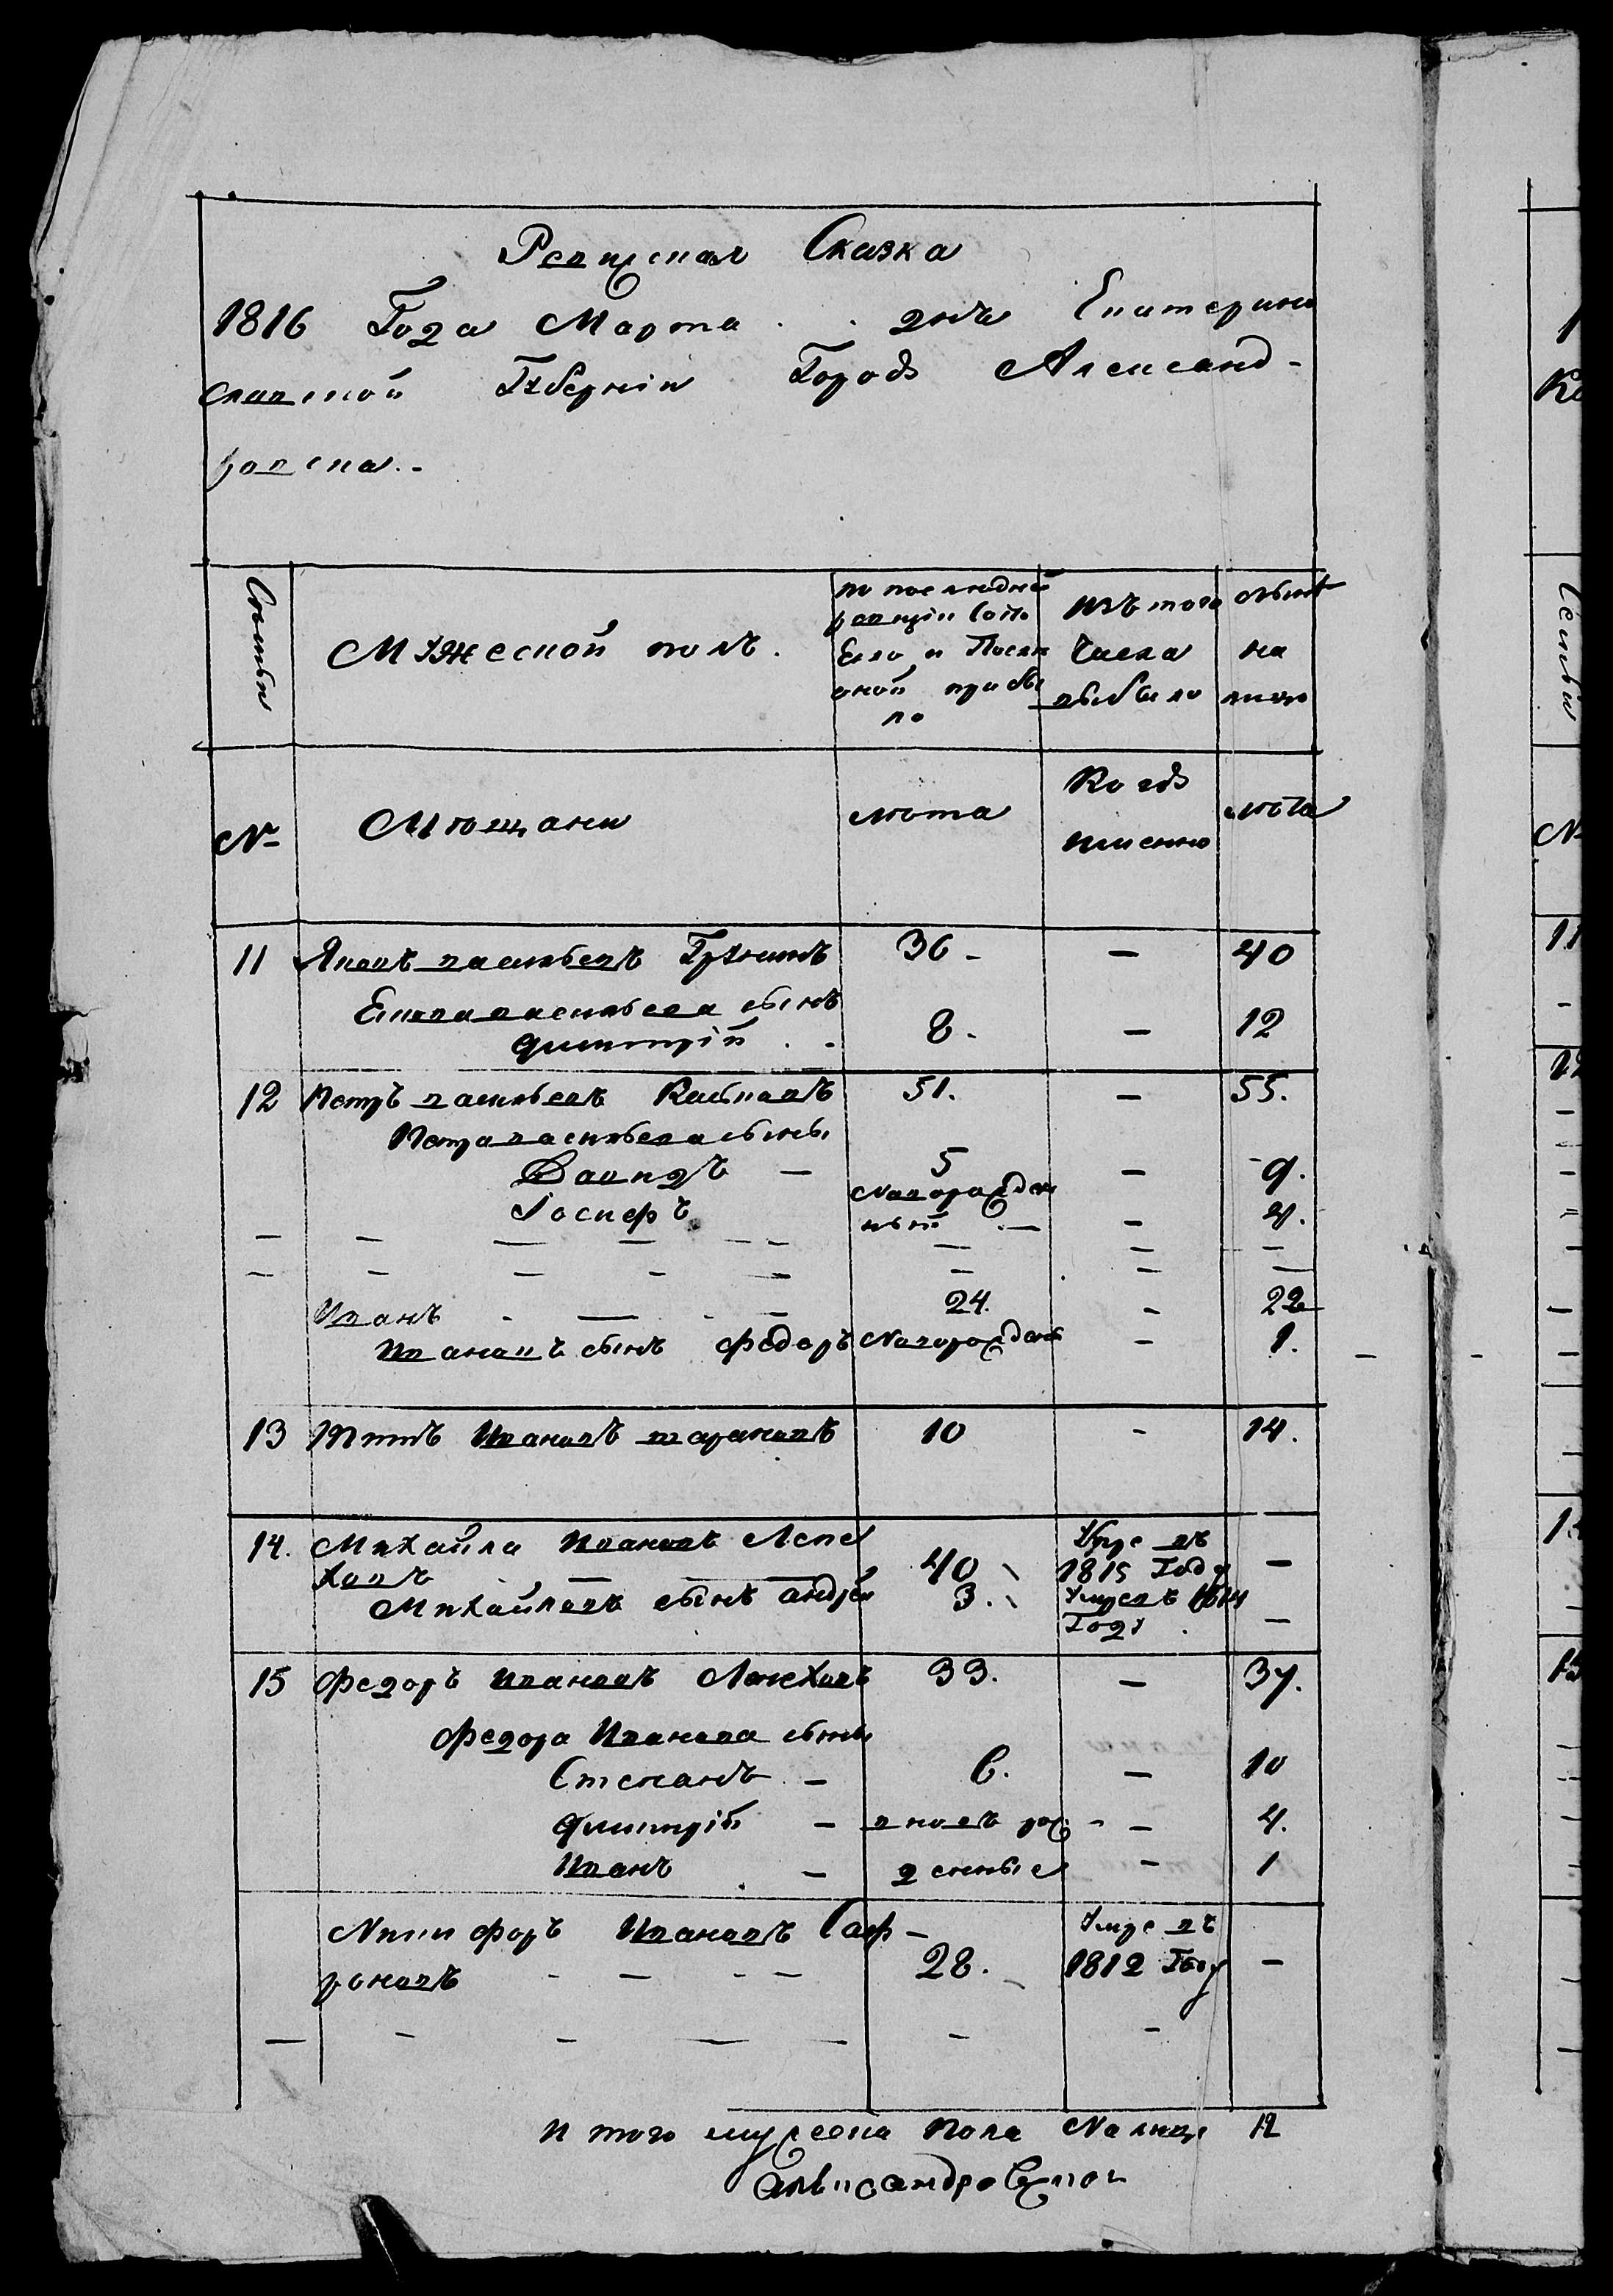 Ревизская Сказка
1816 Года Марта . . дня Екатерино
славской Губерніи Города Александ-
ровска.-
Семьи
Мужеской полъ.
по последней
ревизіи состо
Ело и После
оной прибы
ло
изъ того
числа
выбыло
ныне
на
лицо
№
Мѣщани
лѣта
Когда
имянно
лѣта
11 Яковъ васильевъ Грѣкинъ 36 - - 40
Якова васильева сынъ
дмитрій . . 8. - 12
12 Петръ васильевъ 51. - 55.
Петра васильева сыны
Давидъ - 5 - 9.
Іосифъ
Новорожден
ный - - 4.
Иванъ - - - 24. - 22
Ивановъ сынъ Федоръ Новорожденъ - 1.
13 Титъ Ивановъ тарановъ 10 - 14.
14. Михайла Ивановъ Лепе
ховъ 40 -
Умре въ
1815 Году
Михайловъ сынъ андрей 3.
Умре въ 1814
Году -
15 Федоръ Ивановъ Лепеховъ 33. - 37.
Федора Иванова сыны
Степанъ - 6. - 10
дмитрій - вновь рож - - 4.
Иванъ - денные - 1
Никифоръ Ивановъ Саф-
роновъ - - - - 28.
Умре въ
1812 Году -
и того мужеска пола Налицо 12
Александровской
1
Ко
Семьи
№
11
12
14
15